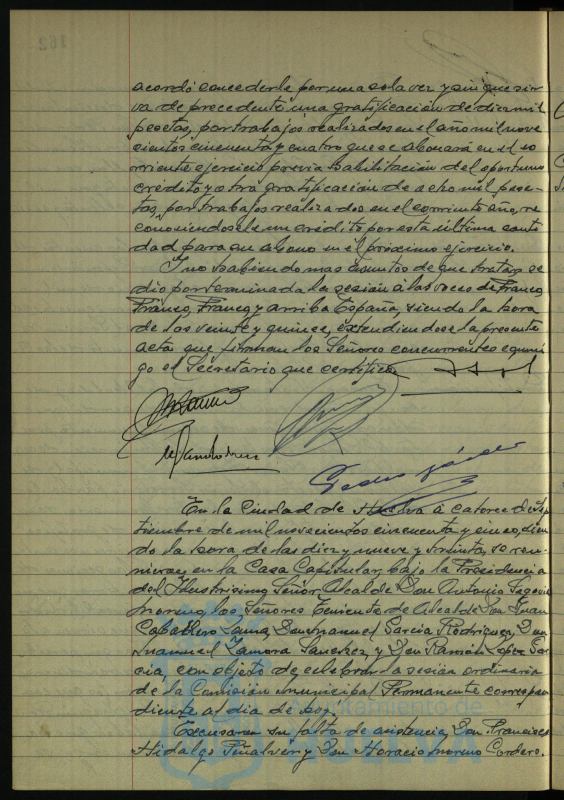 162
acordó concederle por una sola vez y sin que sir-
va de precedente una gratificación de diez mil
pesetas, por trabajos realizados en el año mil nove
cientos cincuenta y cuatro que se abonará en el co
rriente ejercicio previa habilitación del oportuno
crédito y otra gratificación de ocho mil pese-
tas, por trabajos realizados en el corriente año, re
conociendosele un crédito por esta última canti
dad para su abono en el próximo ejercicio.
Y no habiendo mas asuntos de que tratar se
dio por terminada la sesión a las voces de Franco,
Franco, Franco y arriba España, siendo la hora
de las veinte y quince, extendiendose la presente
acta que firman los Señores concurrentes conmi
go el Secretario que certifico
Pedro
En la Ciudad de Huelva a catorce de Sep
tiembre de mil novecientos cincuenta y cinco, sien
do la hora de las diez y nueve y treinta, se reu-
nieron en la Casa Capitular, bajo la Presidencia
del Ilustrisimo Señor Alcalde Don Antonio Segovia
Moreno, los Señores Teniente de Alcalde Don Juan
Caballero Don Manuel Garcia Rodriguez, Don
Manuel Zamora Sanchez y Don Ramón Lopez Gar
cia, con objeto de celebrar la sesión ordinaria
de la Comisión Municipal Permanente correspon
diente al dia de hoy.
Ayuntamiento de
Excusaron su falta de asistencia, Don Francisco
Hidalgo Peñalver y Don Horacio Moreno Cordero.